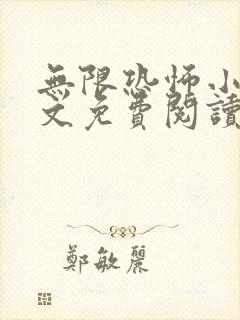 無限恐怖小
文免費閱讀
鄭敏麗